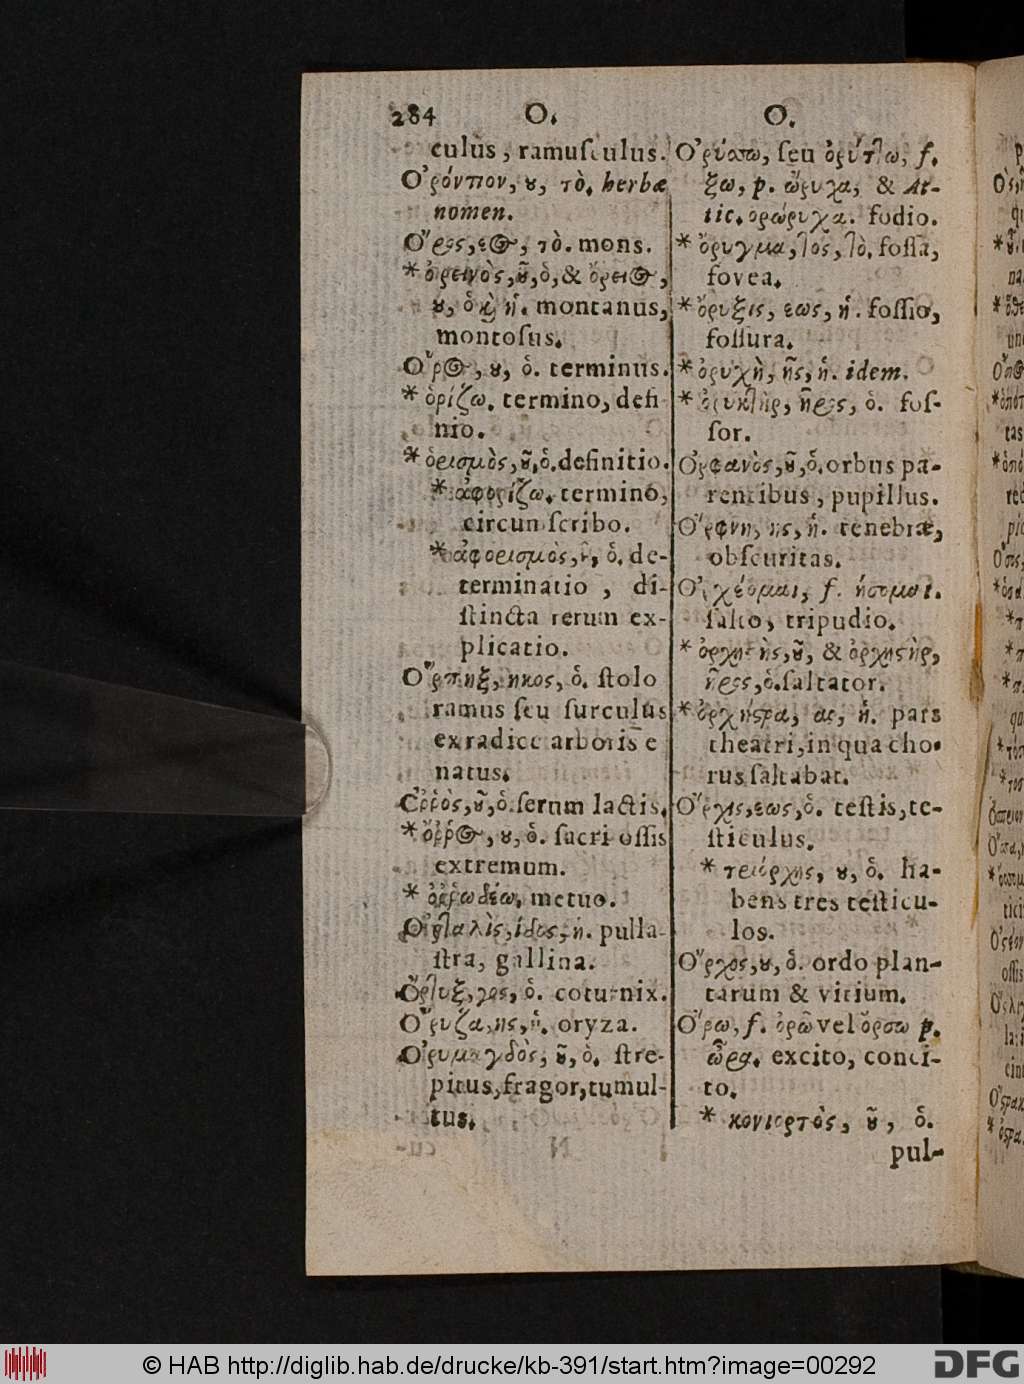 284 O. O.
culus, ramusculus.
Ὀρόντιον, ȣ, τὸ. herbæ
nomen.
Ὄρος, εος, τὸ. mons.
* ὀρεινὸς, ȣ͂, ὁ, & ὄρειος,
ȣ, ὁ κ̀ ἡ. montanus,
montosus.
Ὅρος, ȣ, ὁ. terminus.
* ὁρίζω. termino, defi
nio.
* ὁρισμὸς, ȣ͂, ὁ. definitio.
* ἀφορίζω. termino,
circumscribo.
* ἀφορισμὸς, ȣ͂, ὁ. de-
terminatio, di-
stincta rerum ex-
plicatio.
Ὄρπηξ, ηκος, ὁ. stolo
ramus seu surculus
ex radice arboris e
natus.
Ὀῤῥὸς, ȣ͂, ὁ. serum lactis.
* ὄῤῥος, ȣ, ὁ. sacri ossis
extremum.
* ὀῤῥωδέω. metuo.
Ὀρταλὶς, ίδος, ἡ. pulla-
stra, gallina.
Ὄρτυξ, γος, ὁ. coturnix.
Ὄρυζα, ης, ἡ. oryza.
Ὀρυμαγδὸς, ȣ͂, ὁ. stre-
pitus, fragor, tumul-
tus.
Ὀρύσσω, seu ὀρύττω, f.
ξω, p. ὤρυχα, & At-
tic. ορώρυχα. fodio.
* ὄρυγμα, τος, τὸ. fossa,
fovea.
* ὄρυξις, εως, ἡ. fossio,
fossura.
* ὀρυχὴ, ῆς, ἡ. idem.
* ὀρυκτὴρ, ῆρος, ὁ. fos-
sor.
Ὀρφανὸς, ȣ͂, ὁ. orbus pa-
rentibus, pupillus.
Ὄρφνη, ης, ἡ. tenebræ,
obscuritas.
Ὀρχέομαι, f. ήσομαι.
salto, tripudio.
* ὀρχηστὴς, ȣ͂, & ὀρχηστὴρ,
ῆρος, ὁ. saltator.
* ὀρχήστρα, ας, ἡ. pars
theatri, in qua cho-
rus saltabat.
Ὄρχις, εως, ὁ. testis, te-
sticulus.
* τριόρχης, ȣ, ὁ. ha-
bens tres testicu-
los.
Ὄρχος, ȣ, ὁ. ordo plan-
tarum & vitium.
Ὄρω, f. ὀρῶ vel ὄρσω p.
ὦρα. excito, conci-
to.
* κονιορτὸς, ȣ͂, ὁ.
pul-
© HAB http://diglib.hab.de/drucke/kb-391/start.htm?image=00292
DFG